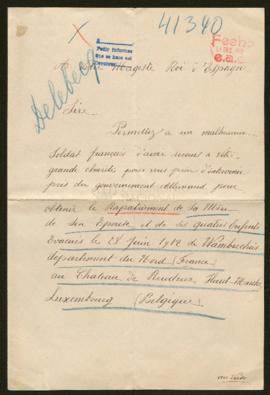 41340
Delebecq
Majesté Roi d'Espagne
Sire
Permettez a un malheureux
Soldat français d'avoir recours a votre
grande charité pour vous prier d'intervenir
près du gouvernement allemand pour
obtenir le Rapatriement de sa Mère
de son Epouse et de ses quatre Enfants
Evacués le 28 Juin 1916 de Wambrechies
département du Nord (France)
au Chateau de Rendeux Haut-Marche
Luxembourg (Belgique)